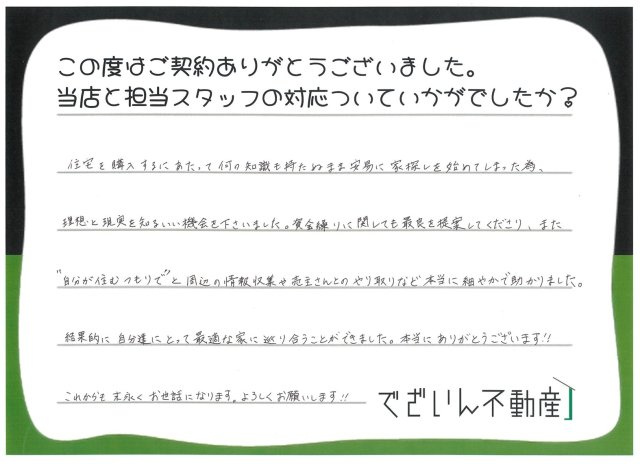 この度はご契約ありがとうございました。
当店と担当スタッフの対応ついていかがでしたか？
住宅を購入するにあたって何の知識も持たぬまま安易に家探しを始めてしまった為、
理想と現実を知るいい機会を下さいました。資金繰りに関しても最良を提案してくださり、また
"自分が住むつもりで"と周辺の情報収集や売主さんとのやり取りなど本当に細やかで助かりました。
結果的に自分達にとって最適な家に巡り合うことができました。本当にありがとうございます!!
これからも末永くお世話になります。よろしくお願いします!!
でざいん不動産